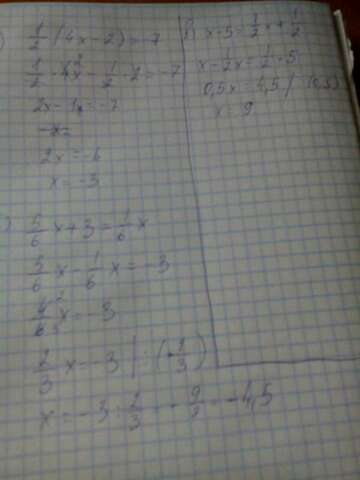 1/2 (4x - 2) = -7
1/2 · 4x - 1/2 · 2 = -7
2x - 1x = -7
2x = -6
x = -3
5/6 x + 3 = 1/6 x
5/6 x - 1/6 x = -3
4/6 x = -3
2/3 x = -3 | : (
x = -3 · 2/3 = - 9/2 = -4,5
x - 5 = 1/2 x + 1/2
x - 1/2 x = 1/2 + 5
0,5x = 4,5 /
x = 9